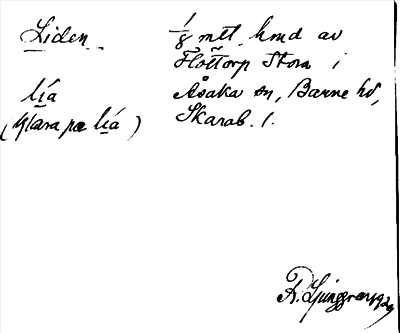 Liden 1/8 mtl hmd av
Flottorp Stora i
lía Åsaka sn, Barne hd,
( på lía ) Skarab. l.
R. Ljunggren 1929